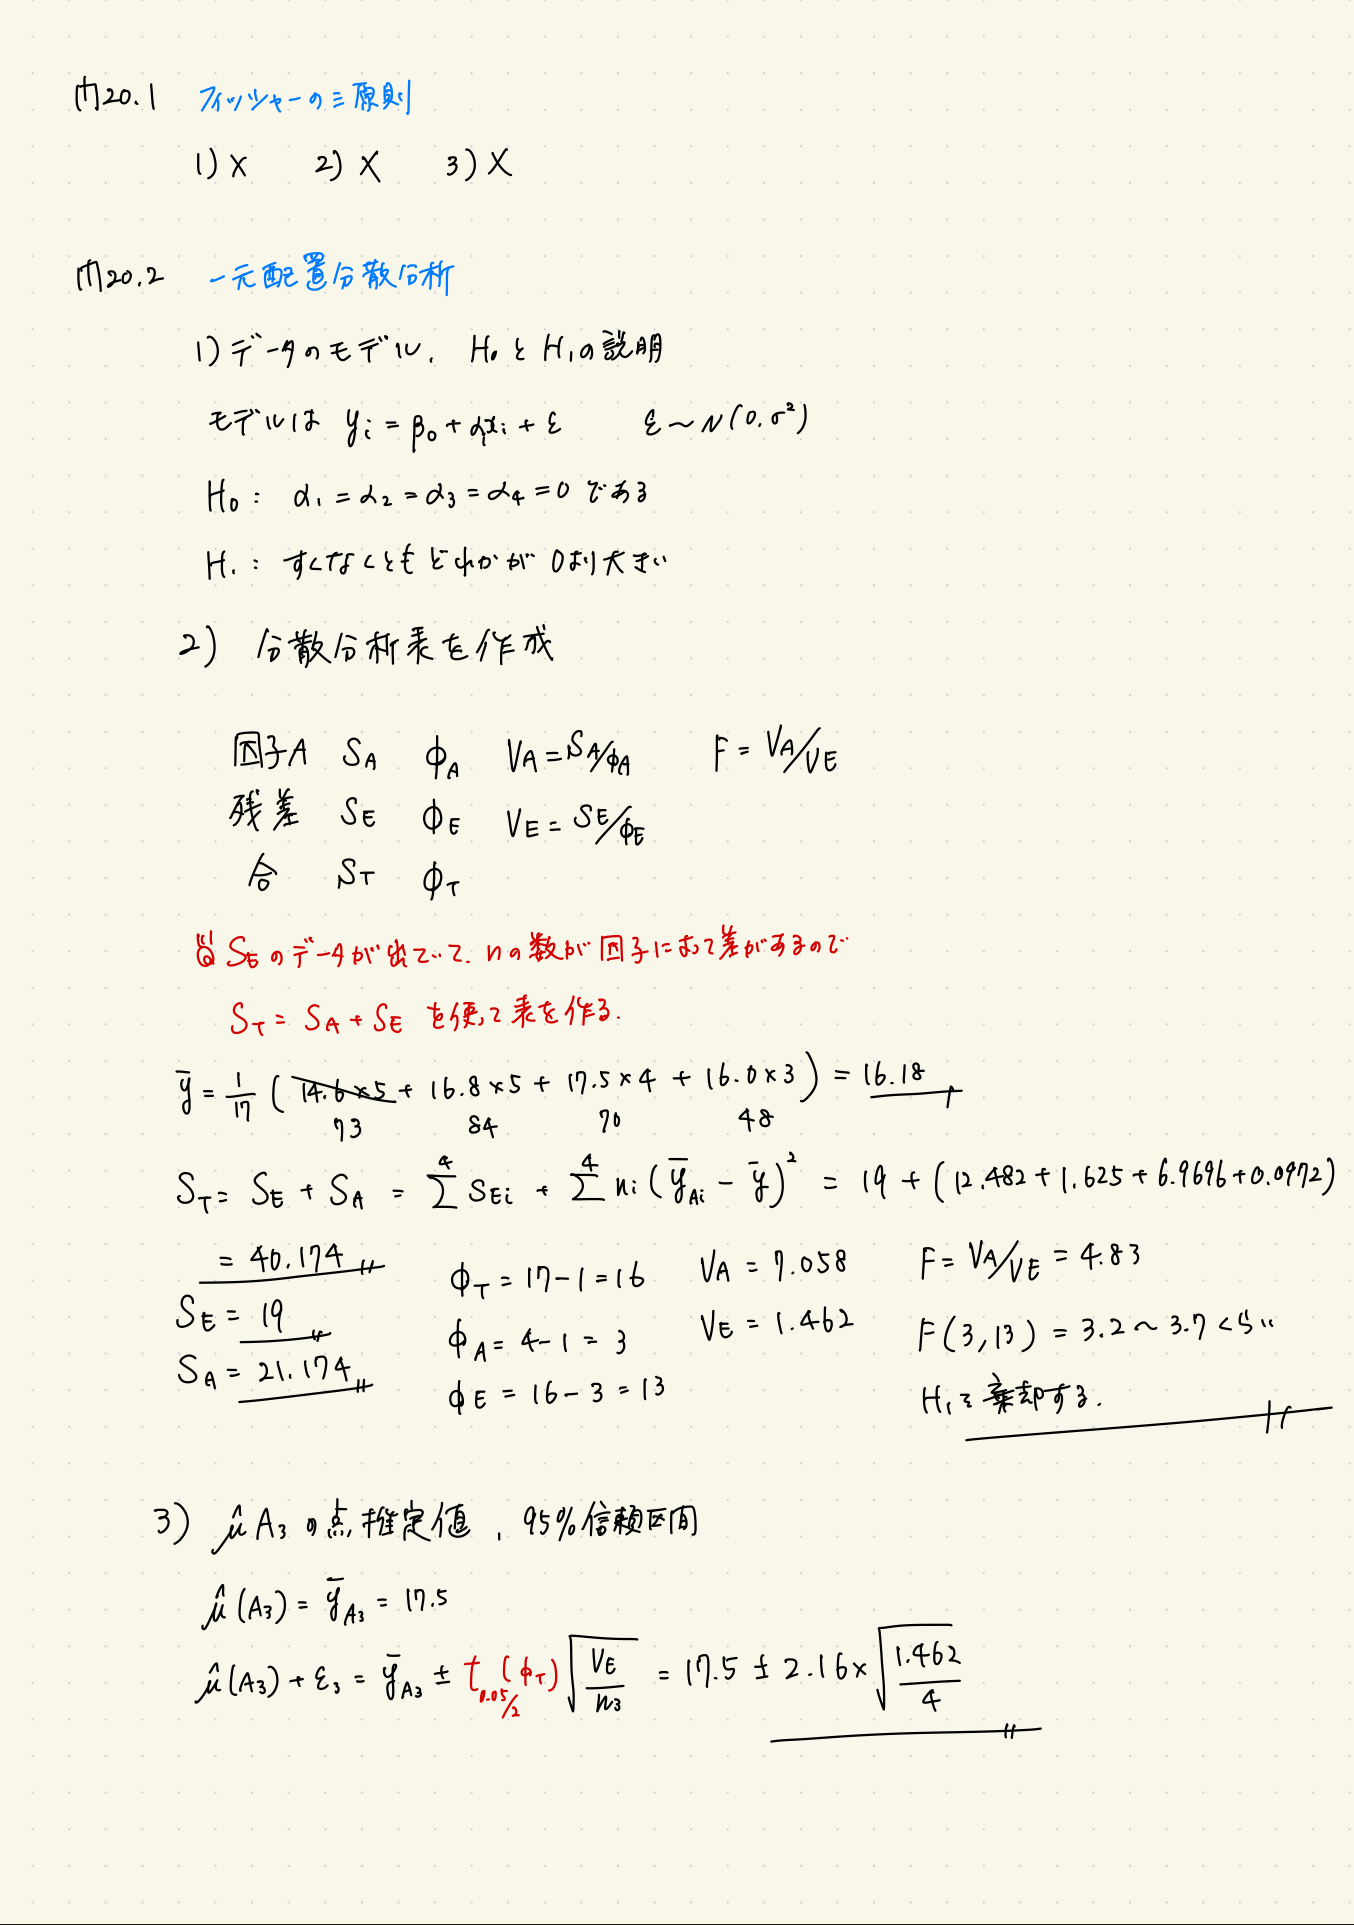 問20.1 フィッシャーの三原則
1) × 2) × 3) ×
問20.2 一元配置分散分析
1) データのモデル. H₀とH₁の説明
モデルは yᵢ = β₀ + αᵢxᵢ + ε ε ~ N(0.σ²)
H₀ : α₁ = α₂ = α₃ = α₄ = 0 である
H₁ : すくなくともどれかが 0より大きい
2) 分散分析表を作成
因子A S_A φ_A V_A = S_A/φ_A F = V_A/V_E
残差 S_E φ_E V_E = S_E/φ_E
合 S_T φ_T
S_Eのデータが出ていて. nの数が因子によって差があるので
S_T = S_A + S_E を使って表を作る.
ȳ = 1/17 ( 14.6×5 + 16.8×5 + 17.5×4 + 16.0×3 ) = 16.18
73 84 70 48
S_T = S_E + S_A = Σ⁴ S_Ei + Σ⁴ nᵢ (ȳ_Ai − ȳ)² = 19 + (12.482 + 1.625 + 6.9696 + 0.0972)
= 40.174
S_E = 19
S_A = 21.174
φ_T = 17 − 1 = 16
φ_A = 4 − 1 = 3
φ_E = 16 − 3 = 13
V_A = 7.058
V_E = 1.462
F = V_A/V_E = 4.83
F(3,13) = 3.2 ~ 3.7 くらい
H₁を棄却する.
3) μ̂ A₃ の点推定値 , 95%信頼区間
μ̂(A₃) = ȳ_A₃ = 17.5
μ̂(A₃) + ε₃ = ȳ_A₃ ± t_0.05/2 (φ_T) √(V_E/n₃) = 17.5 ± 2.16 × √(1.462/4)